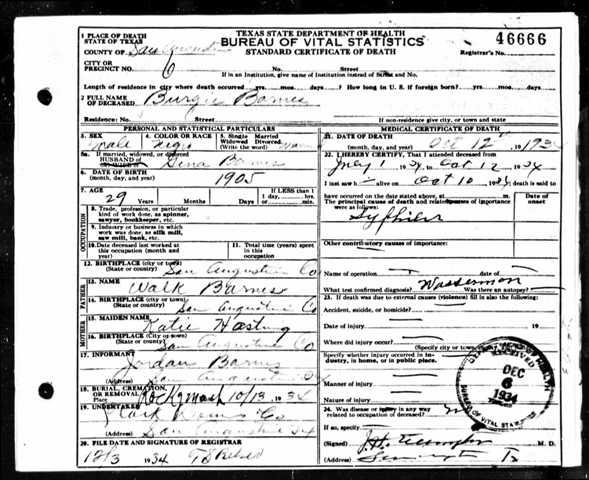 TEXAS STATE DEPARTMENT OF HEALTH
BUREAU OF VITAL STATISTICS
STANDARD CERTIFICATE OF DEATH
46666
Registrar's No.
1 PLACE OF DEATH
STATE OF TEXAS
COUNTY OF San Augustine
CITY OR
PRECINCT NO. 6 No. Street
If in an Institution, give name of Institution instead of Street and No.
Length of residence in city where death occurred yrs. mos. days. How long in U. S. if foreign born? yrs. mos. days.
2 FULL NAME
OF DECEASED Burgie Barnes
Residence: No. Street
If non-residence give city, or town and state
PERSONAL AND STATISTICAL PARTICULARS
3. SEX 4. COLOR OR RACE 5. Single Married
Widowed Divorced
(Write the word)
male negro
5a. If married, widowed, or divorced
HUSBAND of
Barnes
6. DATE OF BIRTH
(month, day, and year) 1905
7. AGE If LESS than
1 day, hrs.
29 Years Months Days or min.
OCCUPATION
8. Trade, profession, or particular
kind of work done, as spinner,
sawyer, bookkeeper, etc.
9. Industry or business in which
work was done, as silk mill,
saw mill, bank, etc.
10. Date deceased last worked at
this occupation (month and
year)
11. Total time (years) spent in
this
occupation
12. BIRTHPLACE (city or town)
(State or country) San Augustine Co
FATHER
13. NAME
Walk Barnes
14. BIRTHPLACE (city or town)
(State or country) San Augustine Co
MOTHER
15. MAIDEN NAME
Katie Hasting
16. BIRTHPLACE (City or Town)
(State or country) San Augustine Co
17. INFORMANT
Jordan Barnes
(Address) San Augustine
18. BURIAL, CREMATION,
OR REMOVAL
Place 10/13 1934
19. UNDERTAKER
Co
(Address) San Augustine Tex
20. FILE DATE AND SIGNATURE OF REGISTRAR
12/3 1934
MEDICAL CERTIFICATE OF DEATH
21. DATE OF DEATH
(month, day, and year) Oct 12th 1934
22. I HEREBY CERTIFY, That I attended deceased from
July 1 1934 to Oct 12 1934
I last saw h alive on Oct 10 1934 death is said to
have occurred on the date stated above at m.
The principal cause of death and related causes of importance
were as follows:
Date of
onset
Syphilis
Other contributory causes of importance:
Name of operation date of
What test confirmed diagnosis? Wasserman Was there an autopsy?
23. If death was due to external causes (violence) fill in also the following:
Accident, suicide, or homicide?
Date of injury 19
Where did injury occur?
(Specify city or town, county, and State)
Specify whether injury occurred in industry, in home, or in public place.
Manner of injury
Nature of injury
24. Was disease or injury in any way
related to occupation of deceased?
(Signed) M. D.
(Address)
RECEIVED
DEC
6
1934
TEXAS
BUREAU OF VITAL STATISTICS